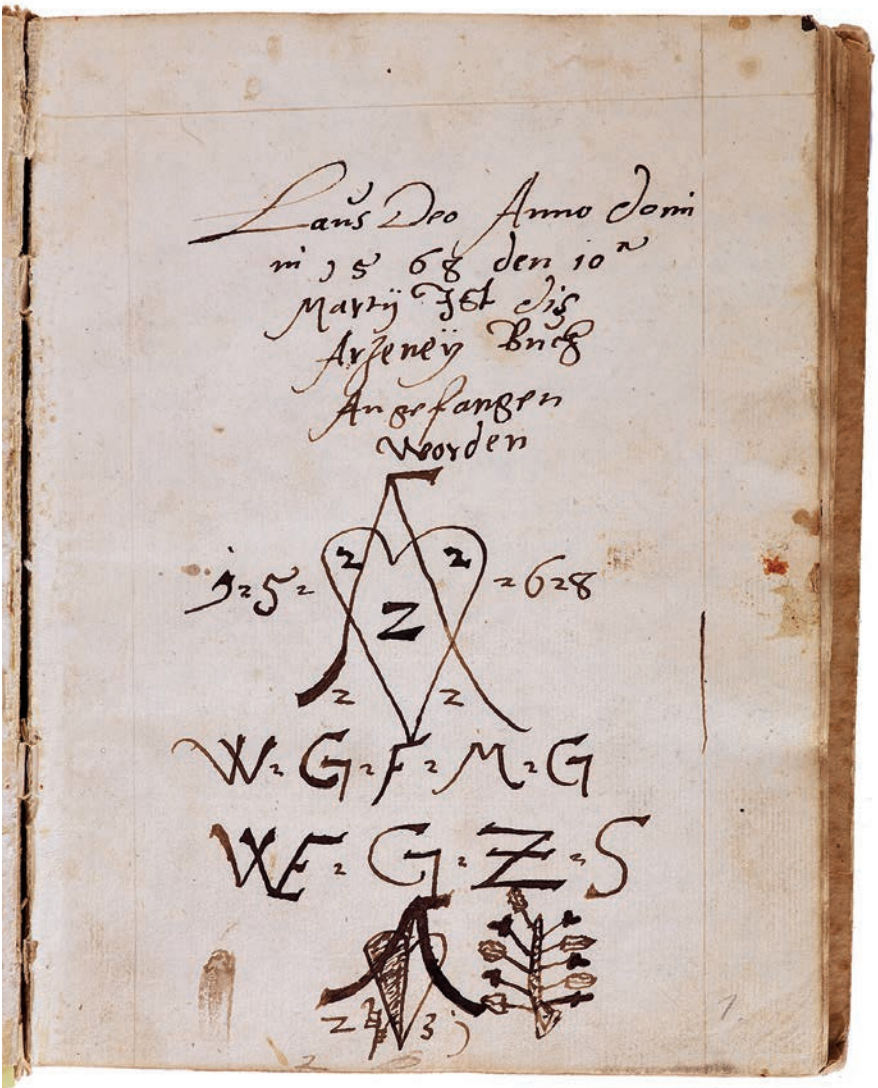 Laus Deo Anno domi
ni 1568 den 10
Martÿ Ist dis
Arzeneÿ Buch
Angefangen
Worden
2 2
1=5= =6=8
Z
2 2
W=G=F=M=G
WE=G=Z=S
Z 3
1.